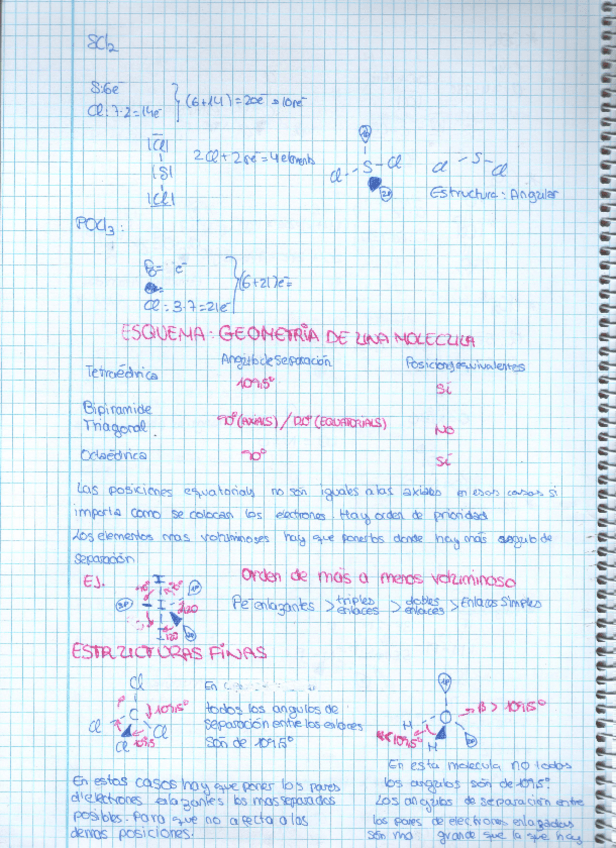 SCl2
S: 6e-
Cl: 7·2=14e-
(6+14)=20e- → 10pe-
|Cl|
|S|
|Cl|
2Cl + 2pe- = 4 elements
Cl S Cl
Cl S Cl
Estructura: Angular
POCl3:
P= e-
O=
Cl: 3·7=21e-
(6+21)e-=
ESQUEMA: GEOMETRÍA DE UNA MOLECULA
Angulo de separación
Posiciones equivalentes
Tetraédrica
109,5º
Sí
Bipiramide
Triagonal.
90º (AXIALS) / 120º (EQUATORIALS)
NO
Octaédrica
90º
Sí
Las posiciones equatorials no son iguales a las axiales en esos casos si
importa como se colocan los electrones. Hay orden de prioridad
Los elementos mas voluminoses hay que ponerlos donde hay más angulo de
separación
EJ.
orden de más a menos voluminoso
Pe- enlazantes > triples enlaces > dobles enlaces > Enlaces Simples
I
I
I
120
120
ESTRUCTURAS FINAS
Cl
C
Cl
Cl
Cl
109,5º
109,5
En
todos los angulos de
separación entre los enlaces
son de 109,5º
O
H
H
β > 109,5º
<109,5º
En estos casos hay que poner los pares
d'electrones enlazantes los mas separados
posibles. Para que no afecta a las
demas posiciones.
En esta molecula no todos
los angulos són de 109,5º.
Los angulos de separación entre
los pares de electrones enlazados
són ma grande que la que hay